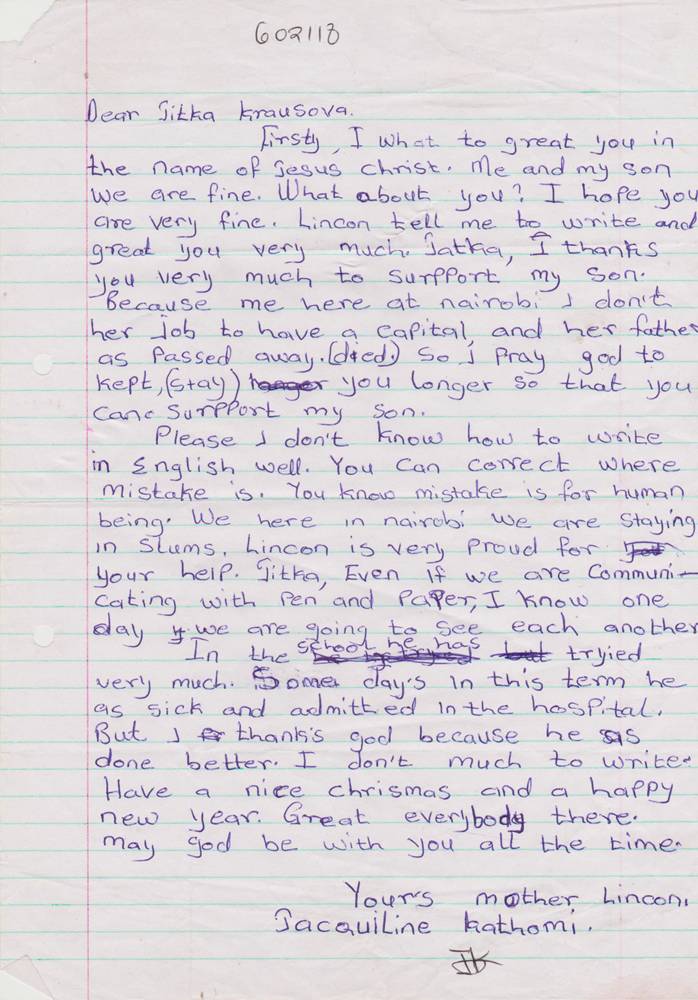 602118
Dear Jitka Krausova.
Firstly, I what to great you in
the name of Jesus christ. Me and my son
we are fine. What about you? I hope you
are very fine. Lincon tell me to write and
great you very much. Jatka, I thanks
you very much to surpport my son.
Because me here at nairobi I don't
her job to have a capital, and her father
as passed away. (died.) So I pray god to
kept, (stay) you longer so that you
cane surpport my son.
Please I don't know how to write
in English well. You can correct where
mistake is. You know mistake is for human
being. We here in nairobi we are staying
in slums. Lincon is very proud for
your help. Jitka, Even if we are communi-
cating with pen and paper, I know one
day we are going to see each another
In the school he has tryied
very much. Some day's in this term he
as sick and admitted in the hospital.
But I thank's god because he as
done better. I don't much to write.
Have a nice chrismas and a happy
new year. Great everybody there.
may god be with you all the time.
Your's mother Lincon,
Jacquiline Kathomi.
JK